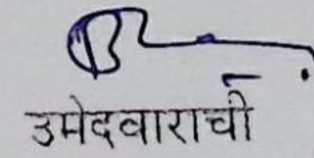 उमेदवाराची